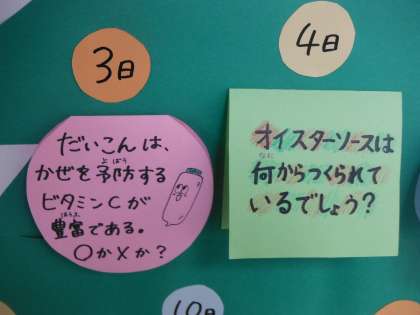 3日
4日
だいこんは、
かぜを予防する
よぼう
ビタミンCが
豊富である。
ほうふ
○か×か？
オイスターソースは
何からつくられて
なに
いるでしょう？
10日